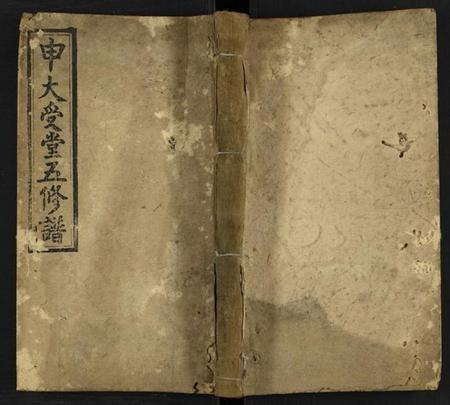 申大受堂五修譜